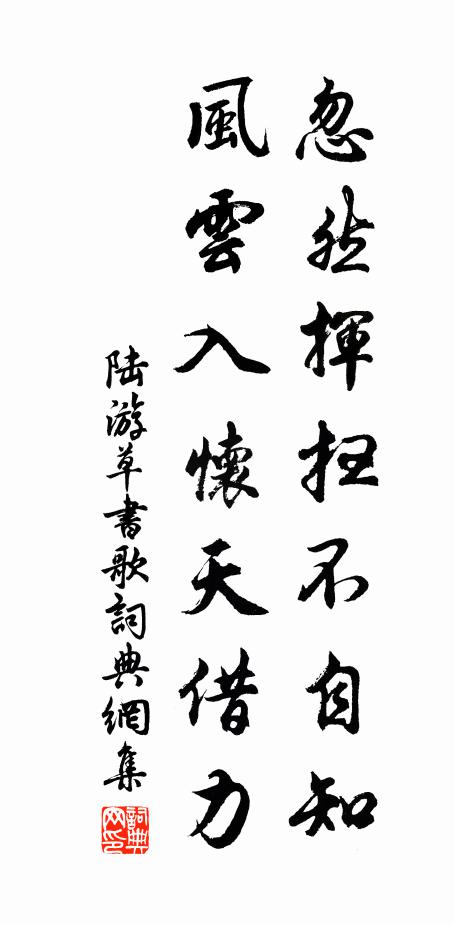 忽然揮掃不自知
風雲入懷天借力
陆游草書歌詞典網集
詞典
网印